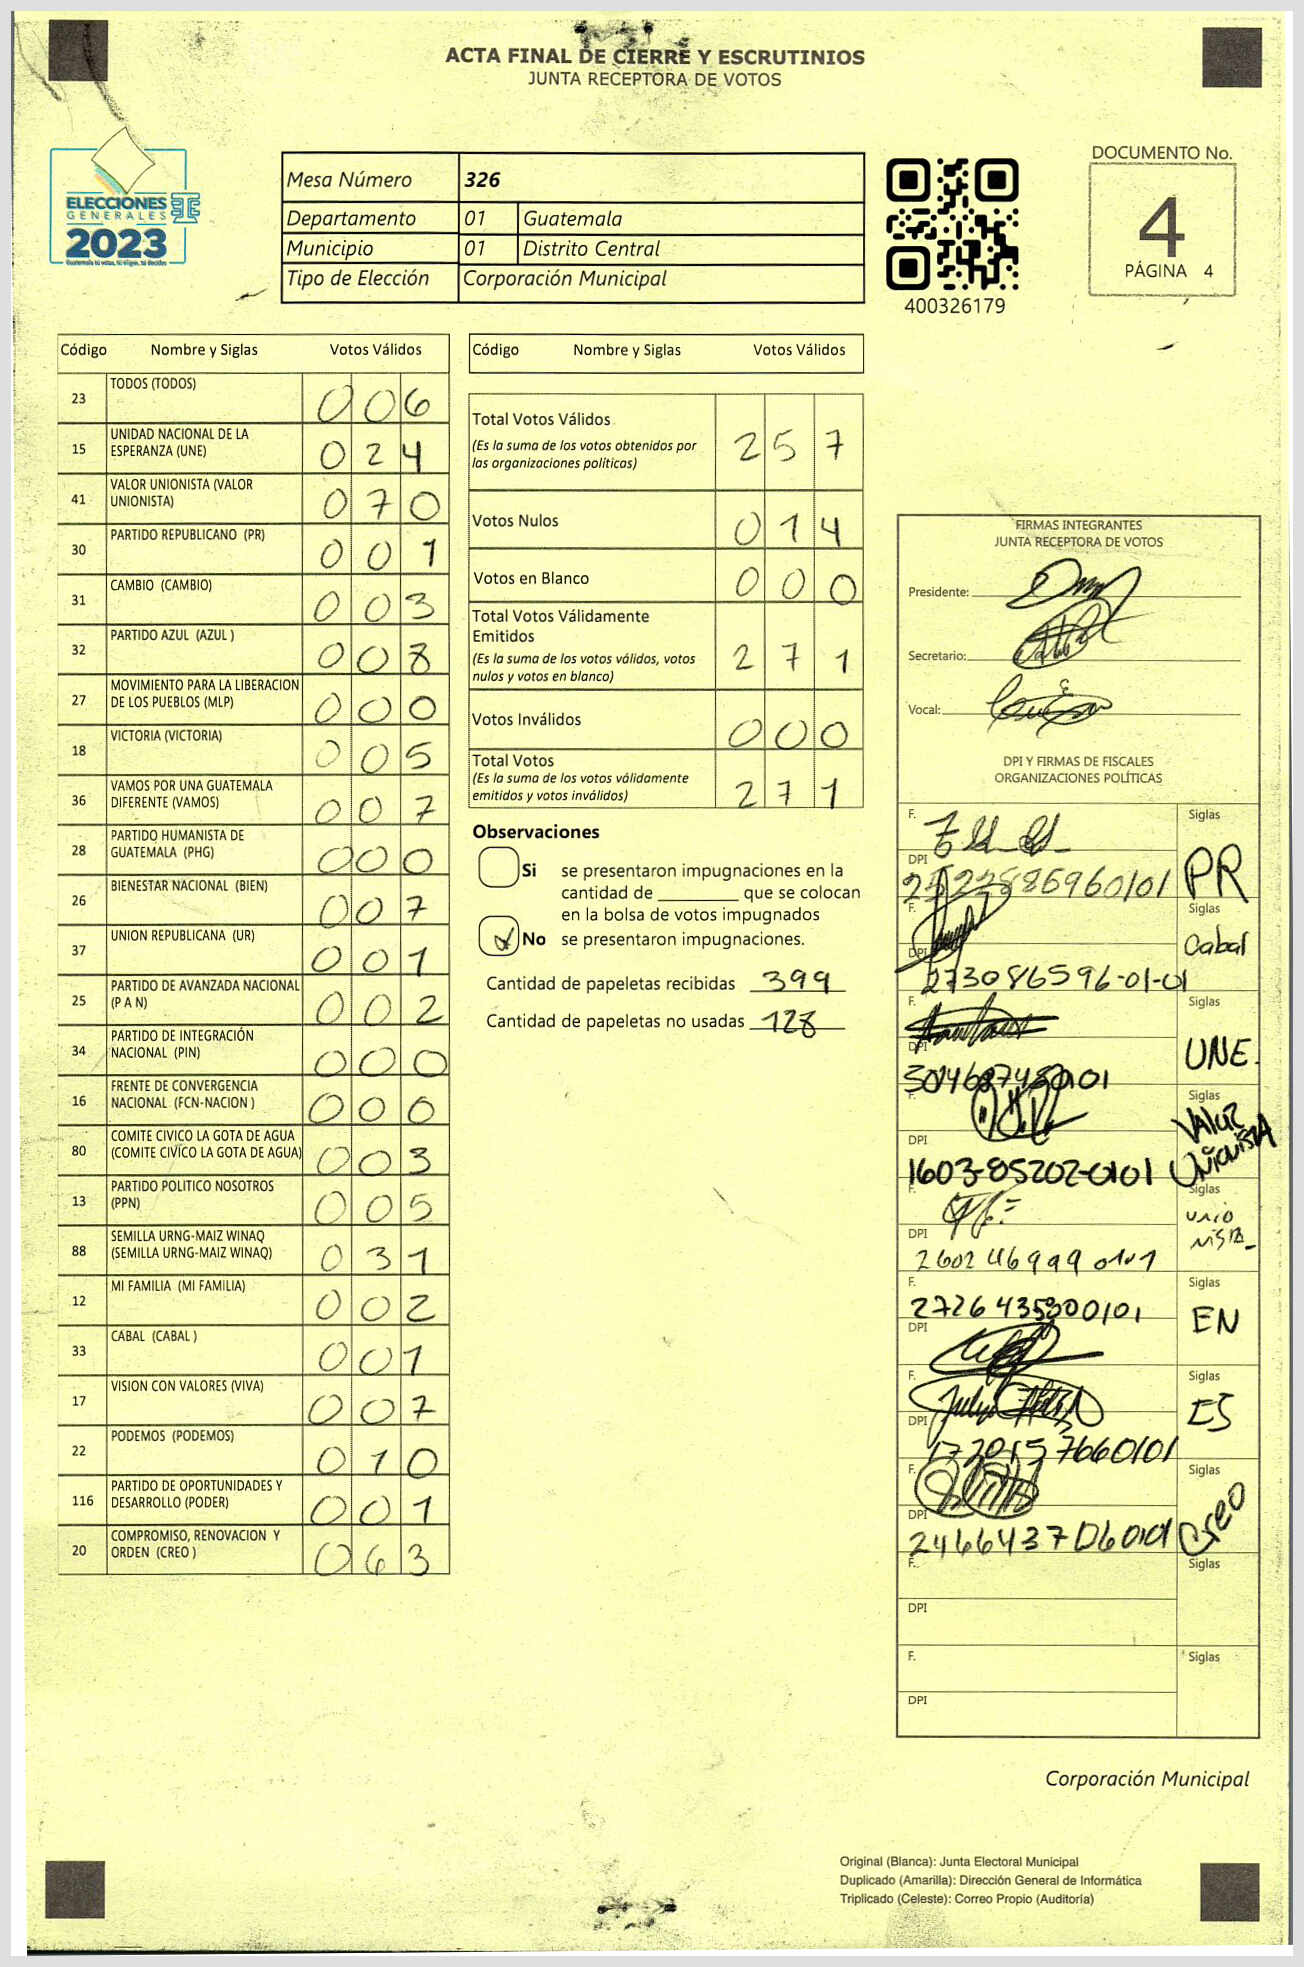 ACTA FINAL DE CIERRE Y ESCRUTINIOS
JUNTA RECEPTORA DE VOTOS
ELECCIONES
GENERALES
2023
Mesa Número 326
Departamento 01 Guatemala
Municipio 01 Distrito Central
Tipo de Elección Corporación Municipal
400326179
DOCUMENTO No.
4
PÁGINA 4
Código Nombre y Siglas Votos Válidos
23 TODOS (TODOS) 006
15 UNIDAD NACIONAL DE LA ESPERANZA (UNE) 024
41 VALOR UNIONISTA (VALOR UNIONISTA) 070
30 PARTIDO REPUBLICANO (PR) 001
31 CAMBIO (CAMBIO) 003
32 PARTIDO AZUL (AZUL ) 008
27 MOVIMIENTO PARA LA LIBERACION DE LOS PUEBLOS (MLP) 000
18 VICTORIA (VICTORIA) 005
36 VAMOS POR UNA GUATEMALA DIFERENTE (VAMOS) 007
28 PARTIDO HUMANISTA DE GUATEMALA (PHG) 000
26 BIENESTAR NACIONAL (BIEN) 007
37 UNION REPUBLICANA (UR) 001
25 PARTIDO DE AVANZADA NACIONAL (P A N) 002
34 PARTIDO DE INTEGRACIÓN NACIONAL (PIN) 000
16 FRENTE DE CONVERGENCIA NACIONAL (FCN-NACION ) 000
80 COMITE CIVICO LA GOTA DE AGUA (COMITE CIVICO LA GOTA DE AGUA) 003
13 PARTIDO POLITICO NOSOTROS (PPN) 005
88 SEMILLA URNG-MAIZ WINAQ (SEMILLA URNG-MAIZ WINAQ) 031
12 MI FAMILIA (MI FAMILIA) 002
33 CABAL (CABAL ) 001
17 VISION CON VALORES (VIVA) 007
22 PODEMOS (PODEMOS) 010
116 PARTIDO DE OPORTUNIDADES Y DESARROLLO (PODER) 001
20 COMPROMISO, RENOVACION Y ORDEN (CREO ) 063
Código Nombre y Siglas Votos Válidos
Total Votos Válidos 257
(Es la suma de los votos obtenidos por
las organizaciones políticas)
Votos Nulos 014
Votos en Blanco 000
Total Votos Válidamente
Emitidos 271
(Es la suma de los votos válidos, votos
nulos y votos en blanco)
Votos Inválidos 000
Total Votos 271
(Es la suma de los votos válidamente
emitidos y votos inválidos)
Observaciones
Si se presentaron impugnaciones en la
cantidad de ________ que se colocan
en la bolsa de votos impugnados
No se presentaron impugnaciones.
Cantidad de papeletas recibidas 399
Cantidad de papeletas no usadas 128
FIRMAS INTEGRANTES
JUNTA RECEPTORA DE VOTOS
Presidente:
Secretario:
Vocal:
DPI Y FIRMAS DE FISCALES
ORGANIZACIONES POLÍTICAS
F. Siglas
DPI PR
F. Siglas
DPI 273086596-01-01 Cabal
F. Siglas
DPI UNE.
F. Siglas
DPI 1603-85202-0101 VALOR UNIONISTA
F. Siglas
DPI UNIO NISTA
F. Siglas
DPI EN
F. Siglas
DPI ES
F. Siglas
DPI Creo
F. Siglas
DPI
F. Siglas
DPI
Corporación Municipal
Original (Blanca): Junta Electoral Municipal
Duplicado (Amarilla): Dirección General de Informática
Triplicado (Celeste): Correo Propio (Auditoría)